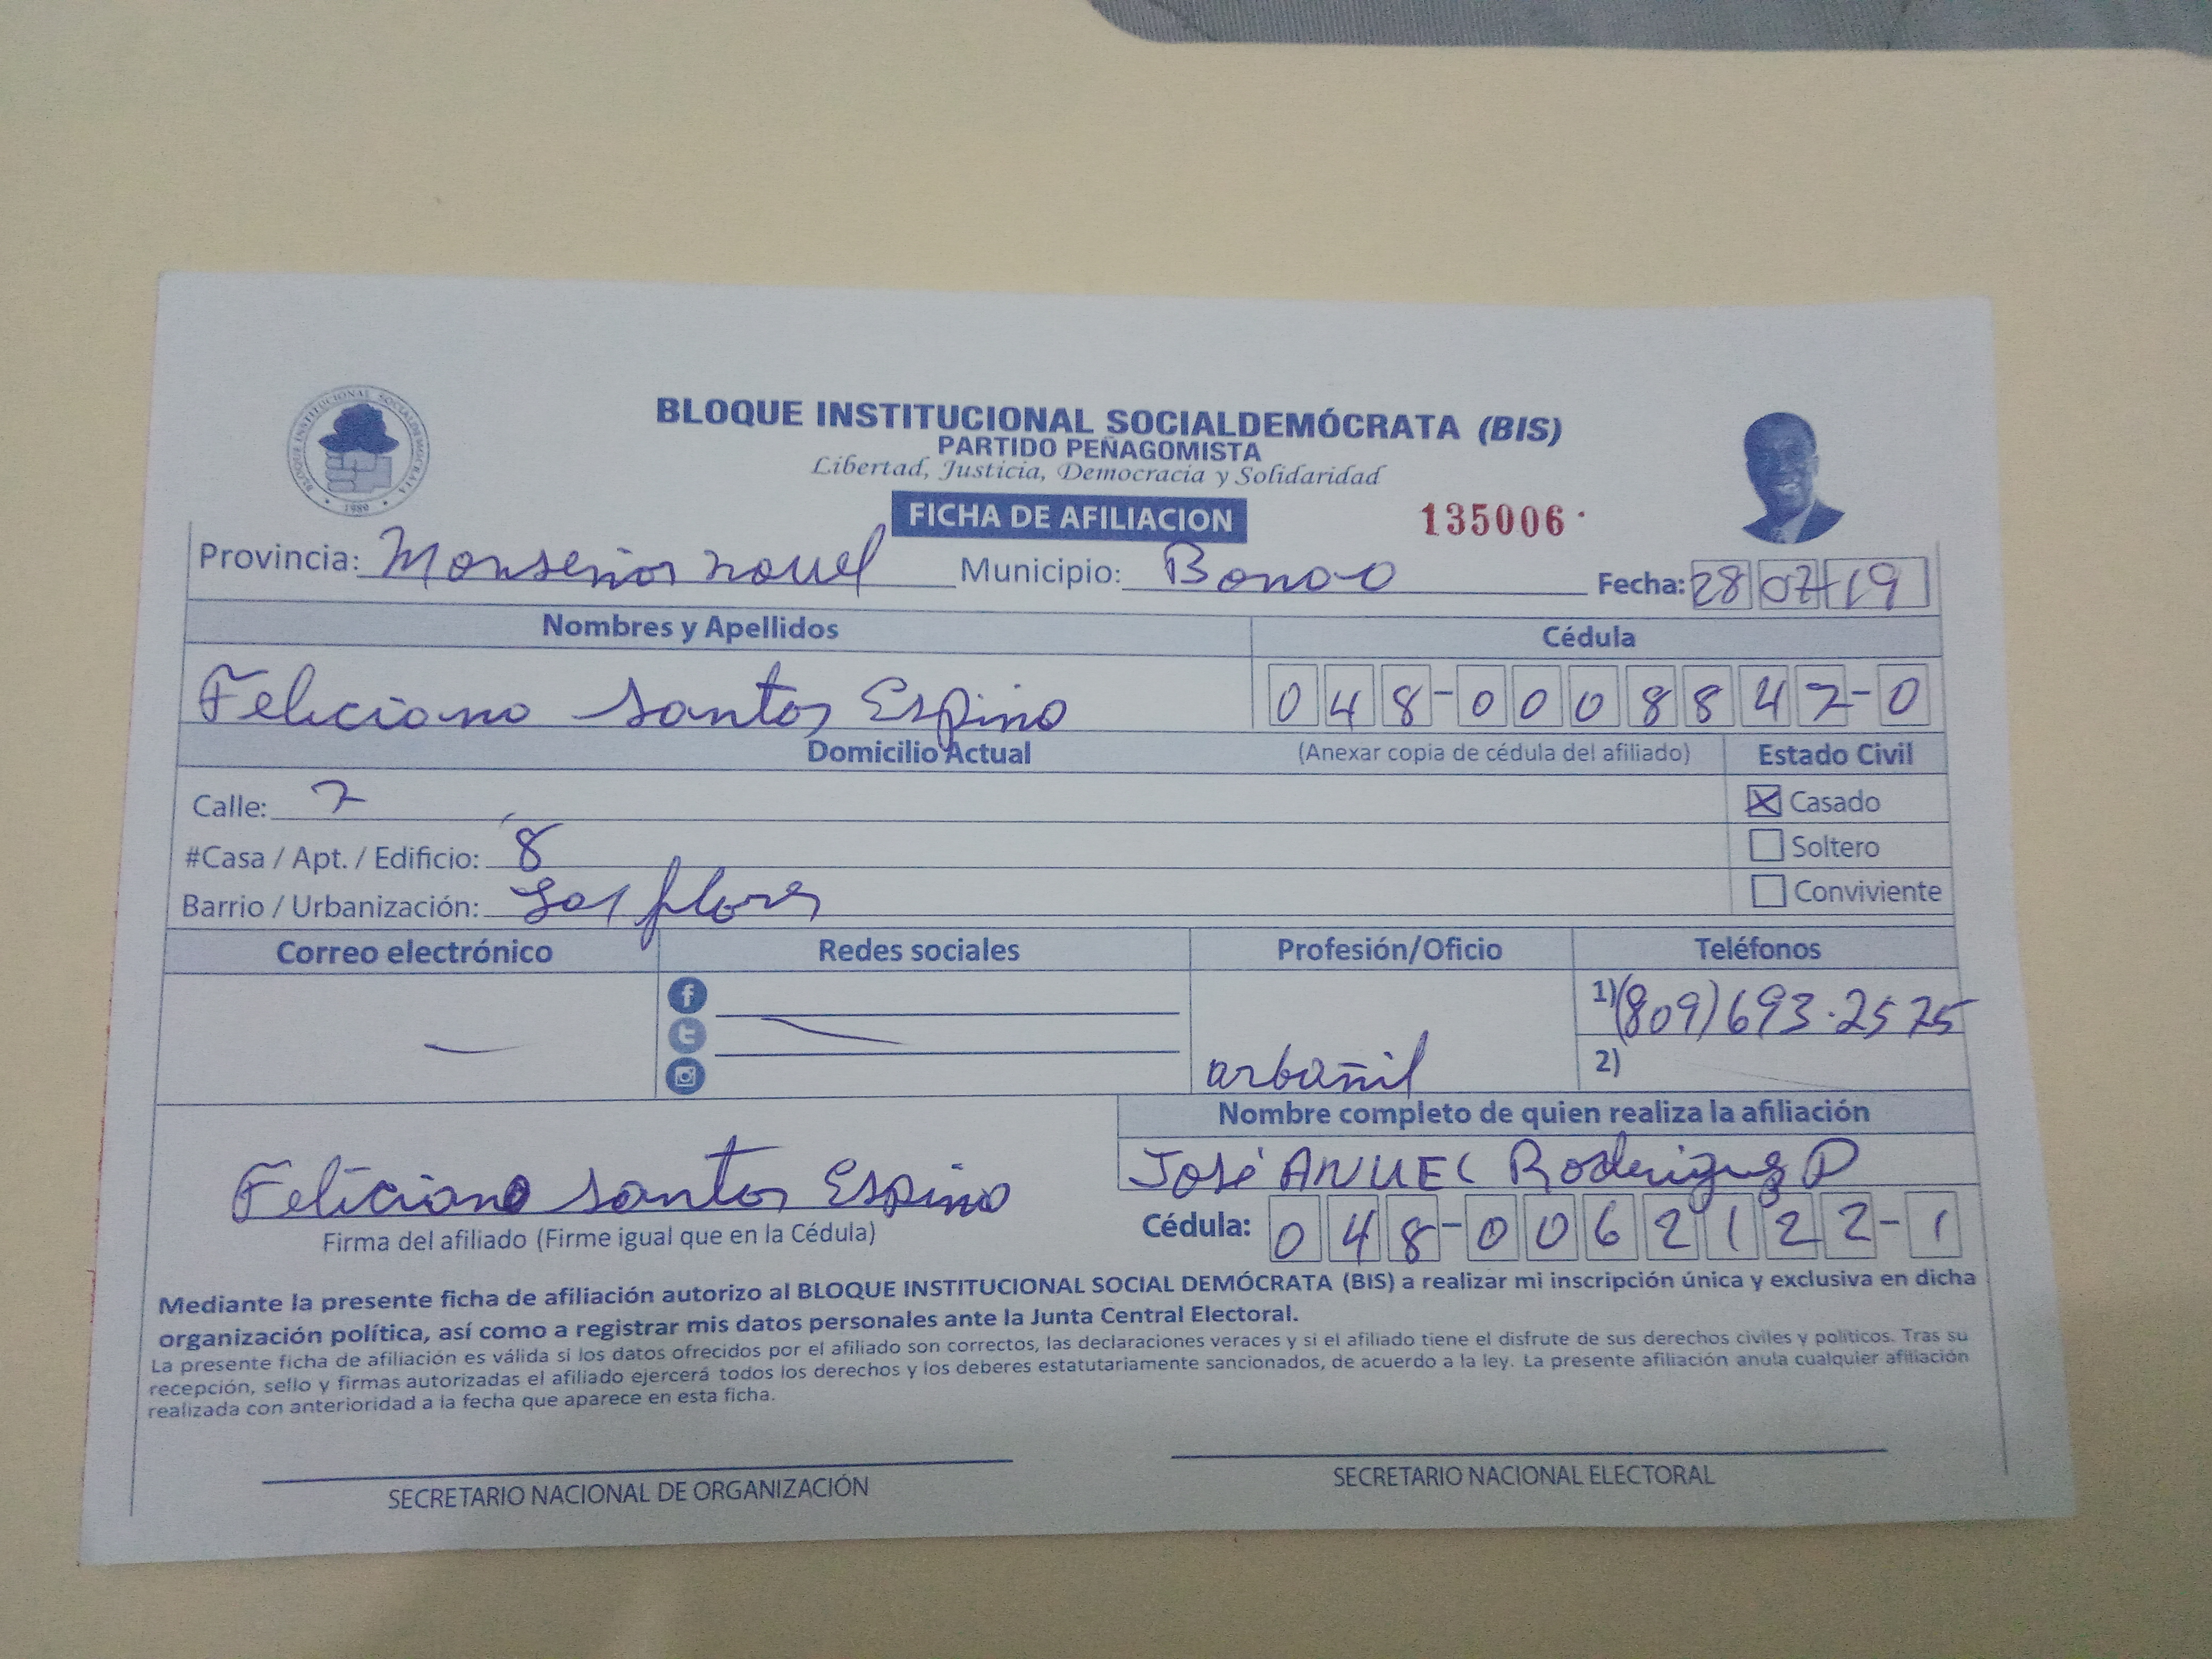 BLOQUE INSTITUCIONAL SOCIALDEMÓCRATA (BIS)
PARTIDO PEÑAGOMISTA
Libertad, Justicia, Democracia y Solidaridad
BLOQUE INSTITUCIONAL SOCIALDEMOCRATA
1989
FICHA DE AFILIACION 135006
Provincia: Monseñor nouel Municipio: Bonao Fecha: 28 07 19
Nombres y Apellidos Cédula
Feliciano Santos Espino 048-0008847-0
Domicilio Actual (Anexar copia de cédula del afiliado) Estado Civil
Calle: 7 Casado
#Casa / Apt. / Edificio: 8 Soltero
Barrio / Urbanización: Las flores Conviviente
Correo electrónico Redes sociales Profesión/Oficio Teléfonos
1) (809) 693-2575
arbañil 2)
Nombre completo de quien realiza la afiliación
José ANUEL Rodriguez P
Feliciano Santos Espino
Firma del afiliado (Firme igual que en la Cédula) Cédula: 048-0062122-1
Mediante la presente ficha de afiliación autorizo al BLOQUE INSTITUCIONAL SOCIAL DEMÓCRATA (BIS) a realizar mi inscripción única y exclusiva en dicha
organización política, así como a registrar mis datos personales ante la Junta Central Electoral.
La presente ficha de afiliación es válida si los datos ofrecidos por el afiliado son correctos, las declaraciones veraces y si el afiliado tiene el disfrute de sus derechos civiles y políticos. Tras su
recepción, sello y firmas autorizadas el afiliado ejercerá todos los derechos y los deberes estatutariamente sancionados, de acuerdo a la ley. La presente afiliación anula cualquier afiliación
realizada con anterioridad a la fecha que aparece en esta ficha.
SECRETARIO NACIONAL DE ORGANIZACIÓN SECRETARIO NACIONAL ELECTORAL